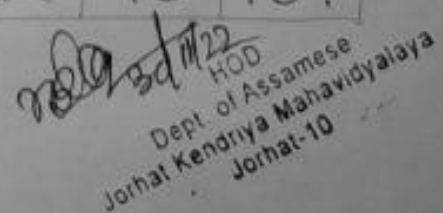 HOD
Dept. of Assamese
Jorhat Kendriya Mahavidyalaya
Jorhat-10